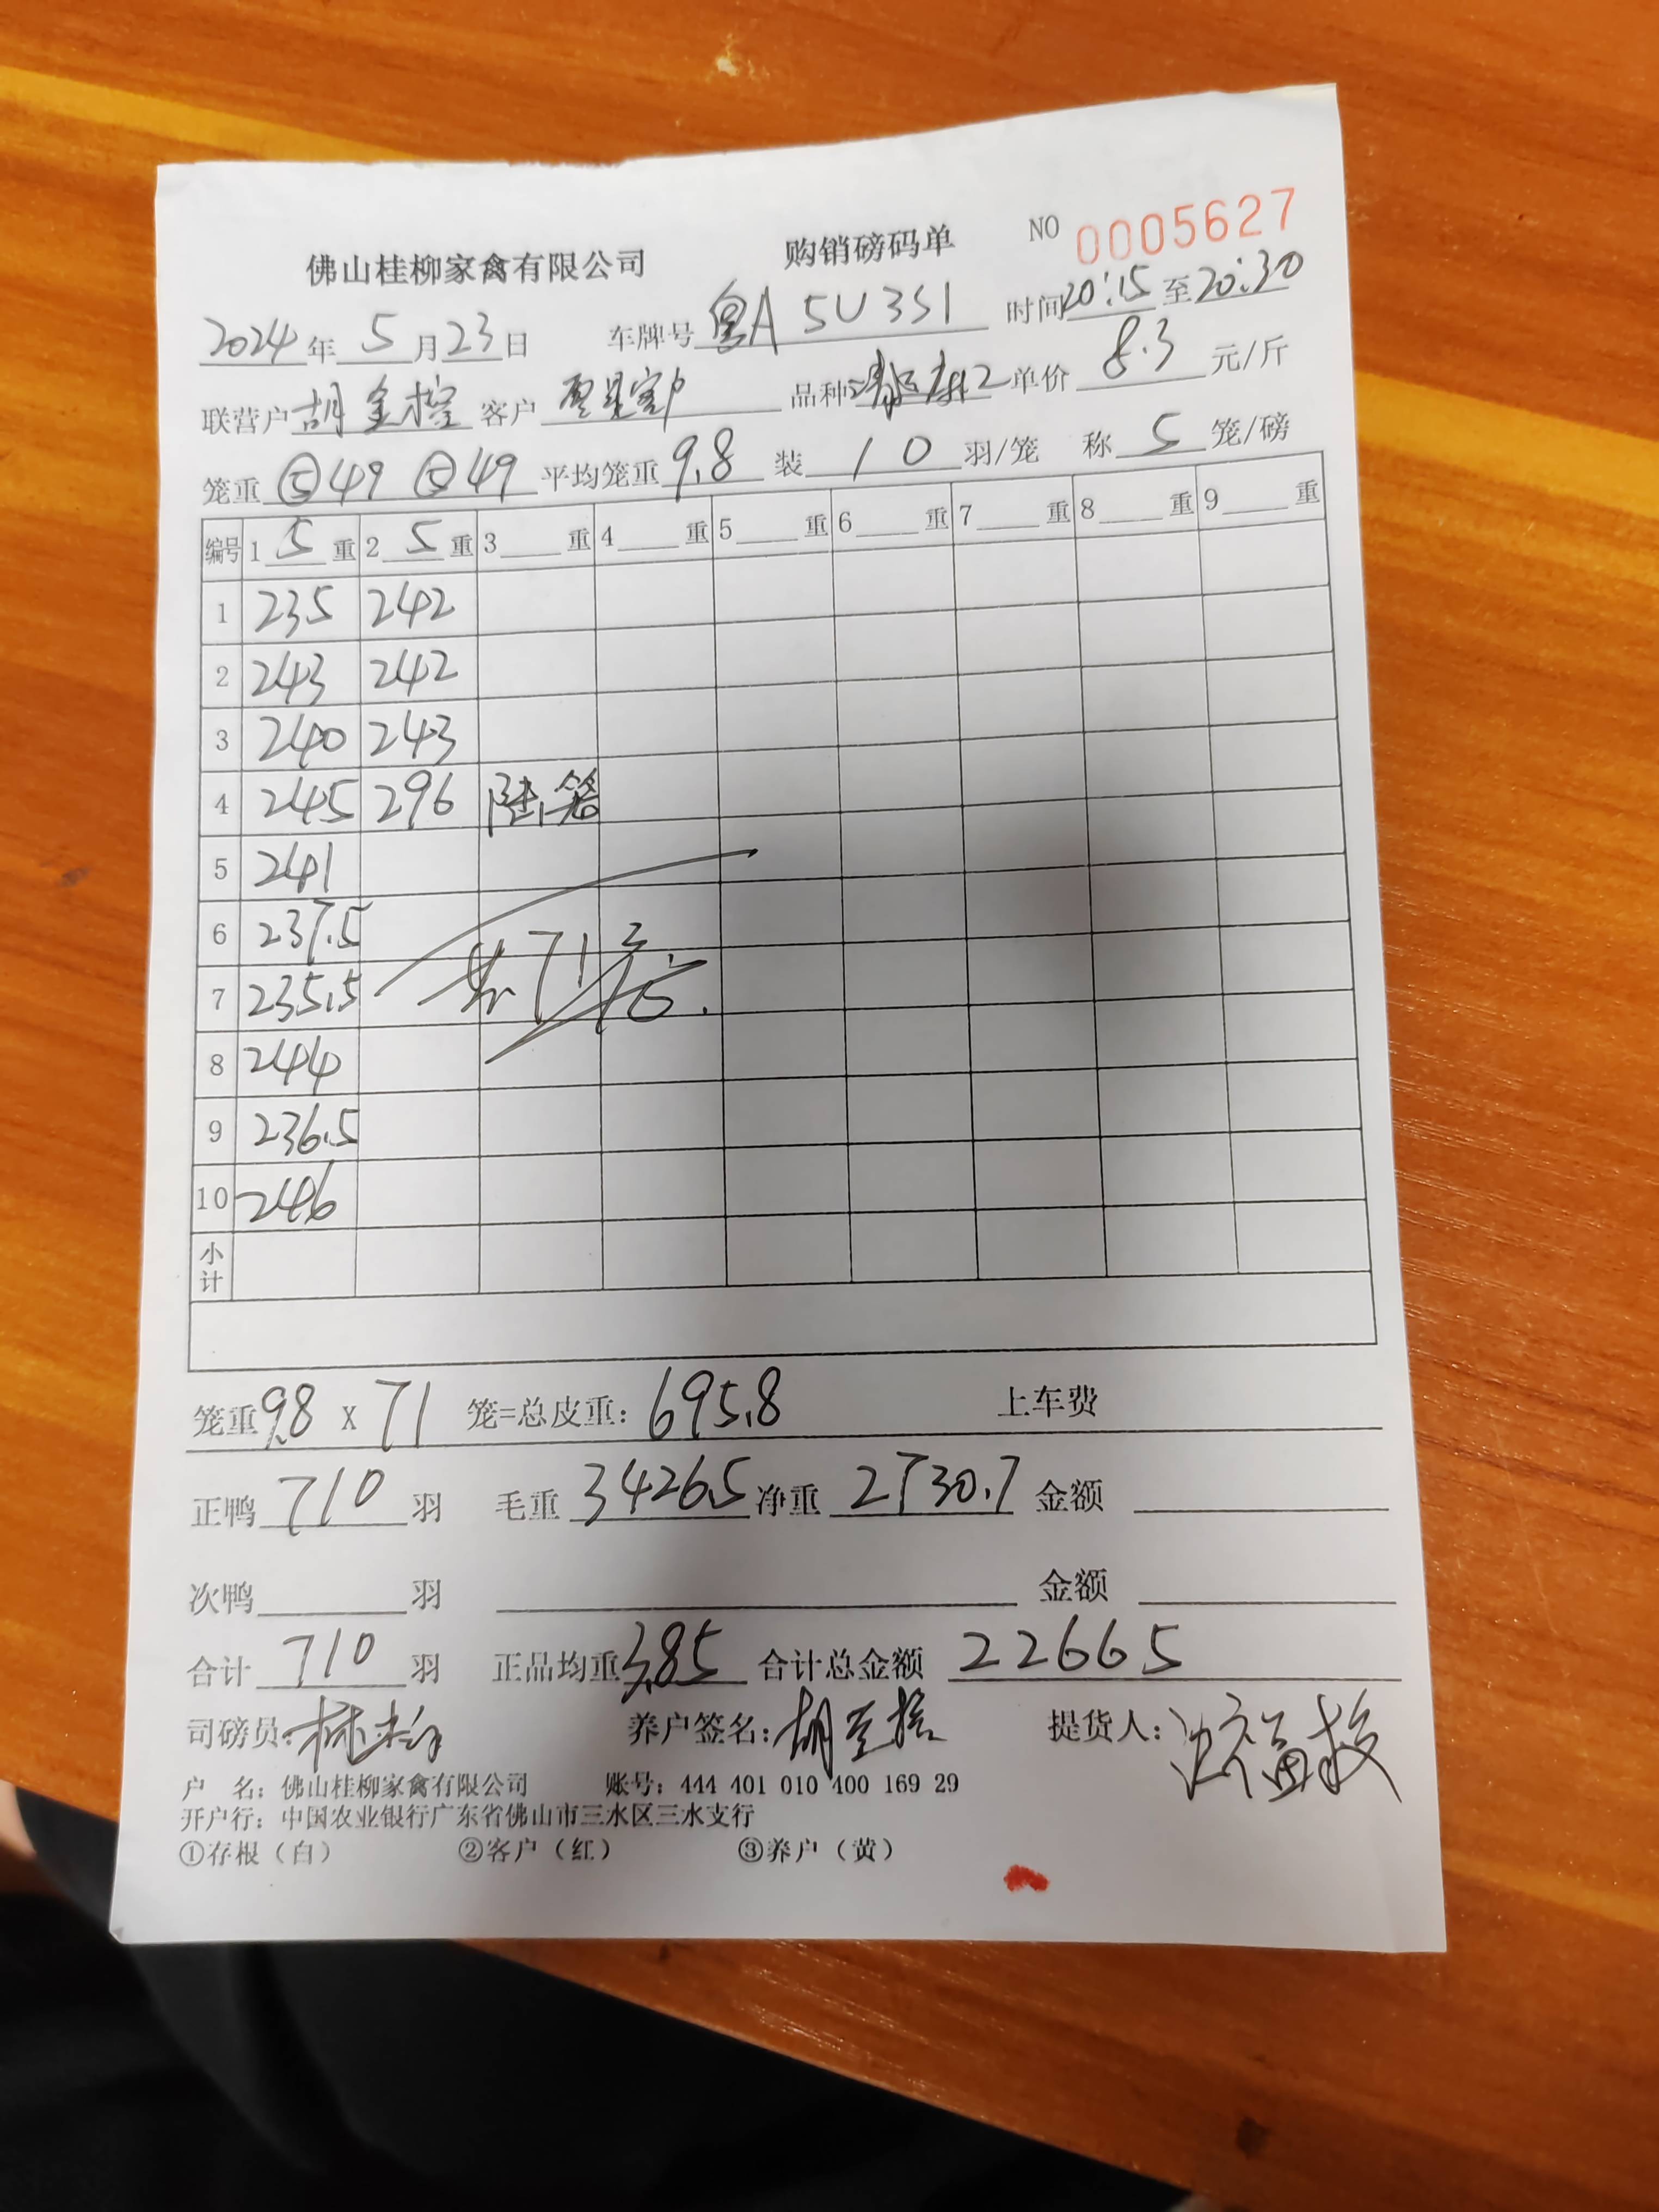 佛山桂柳家禽有限公司 购销磅码单 NO 0005627
2024年5月23日 车牌号 粤A5U3S1 时间20:15至20:30
联营户 胡金 客户 品种 单价 8.3 元/斤
笼重 ⑤49 ⑤49 平均笼重 9.8 装 10 羽/笼 称 5 笼/磅
编号 1 5 重 2 5 重 3 重 4 重 5 重 6 重 7 重 8 重 9 重
1 235 242
2 243 242
3 240 243
4 245 296 陆笼
5 241
6 237.5
共71笼
7 235.5
8 244
9 236.5
10 246
小计
笼重9.8 X 71 笼=总皮重: 695.8 上车费
正鸭 710 羽 毛重 3426.5 净重 2730.7 金额
次鸭 羽 金额
合计 710 羽 正品均重3.85 合计总金额 22665
司磅员: 养户签名: 胡 提货人:
户 名: 佛山桂柳家禽有限公司 账号: 444 401 010 400 169 29
开户行: 中国农业银行广东省佛山市三水区三水支行
①存根（白） ②客户（红） ③养户（黄）